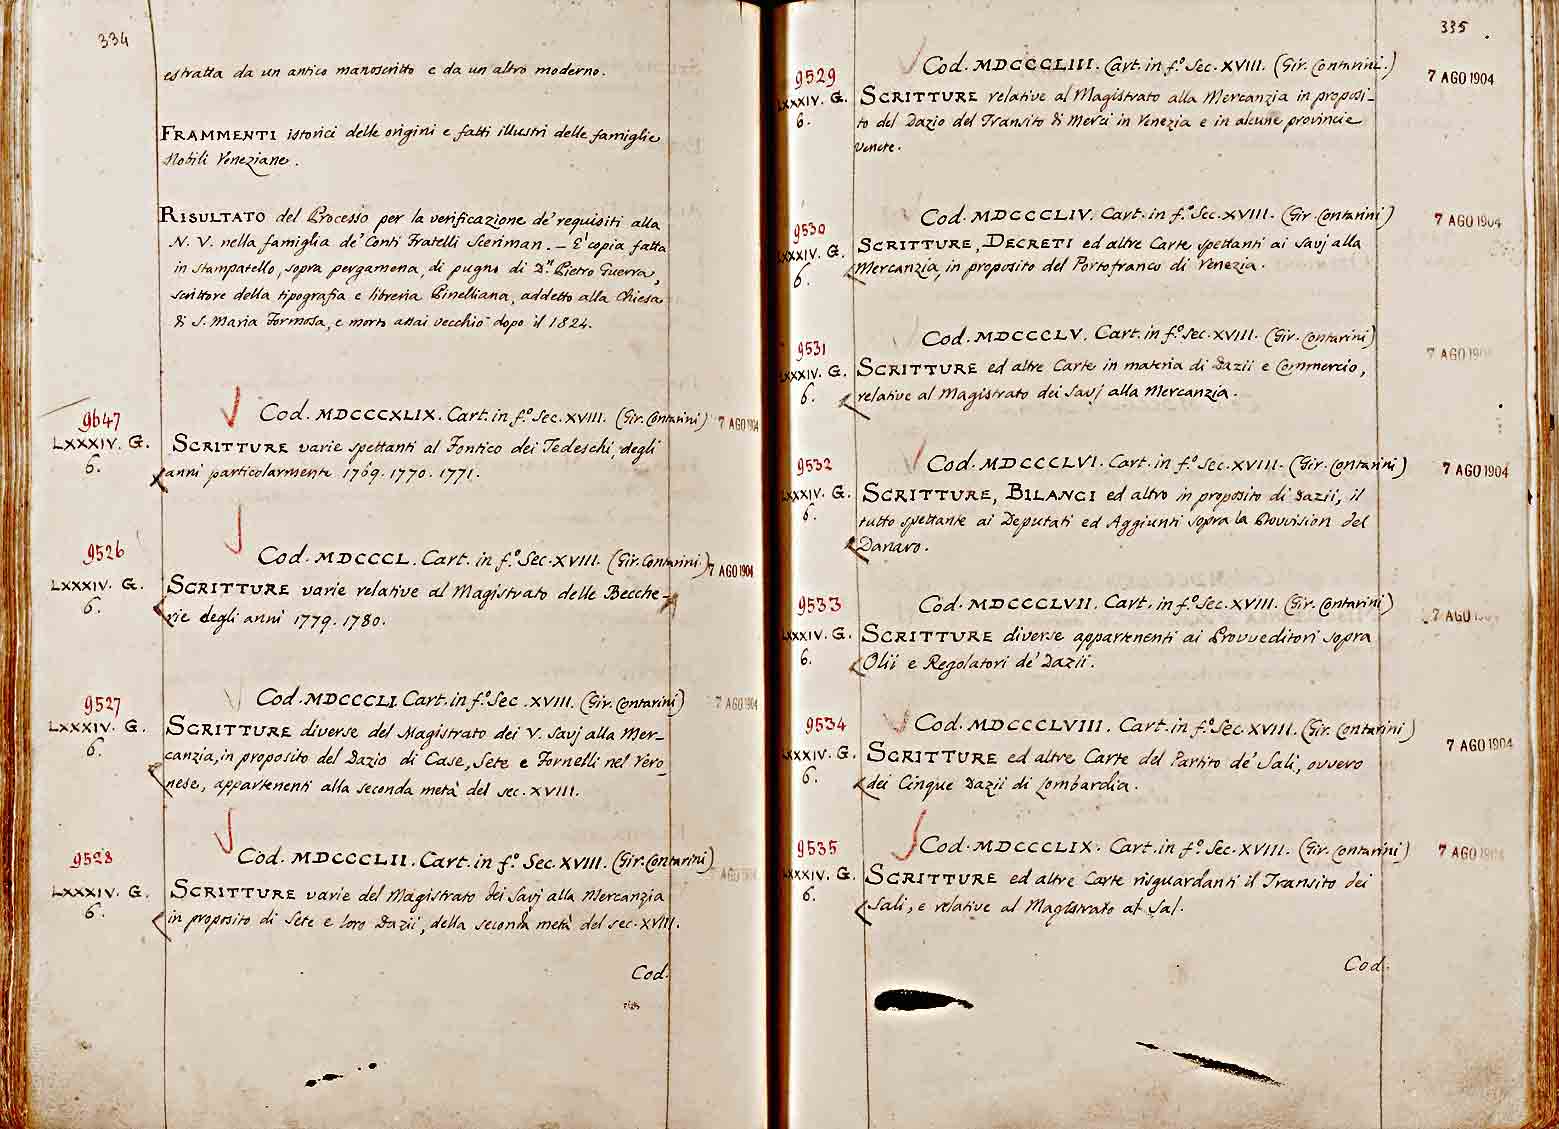 334
estratta da un antico manoscritto e da un altro moderno.
FRAMMENTI istorici delle origini e fatti illustri delle famiglie
Nobili Veneziane.
RISULTATO del Processo per la verificazione de' requisiti alla
N. V. nella famiglia de' Conti Fratelli Sceriman. – È copia fatta
in stampatello, sopra pergamena, di pugno di Dn. Pietro Guerra,
scrittore della tipografia e libreria Pinelliana, addetto alla Chiesa
di S. Maria Formosa, e morto assai vecchio dopo il 1824.
9647
Cod. MDCCCXLIX. Cart. in f.º Sec. XVIII. (Gir. Contarini)
7 AGO 1904
LXXXIV. G.
6.
SCRITTURE varie spettanti al Fontico dei Tedeschi, degli
anni particolarmente 1769. 1770. 1771.
9526
Cod. MDCCCL. Cart. in f.º Sec. XVIII. (Gir. Contarini.)
7 AGO 1904
LXXXIV. G.
6.
SCRITTURE varie relative al Magistrato delle Becche-
rie degli anni 1779. 1780.
9527
Cod. MDCCCLI Cart. in f.º Sec. XVIII. (Gir. Contarini)
7 AGO 1904
LXXXIV. G.
6.
SCRITTURE diverse del Magistrato dei V. Savj alla Mer-
canzia, in proposito del Dazio di Case, Sete e Fornelli nel Vero-
nese, appartenenti alla seconda metà del sec. XVIII.
9528
Cod. MDCCCLII. Cart. in f.º Sec. XVIII. (Gir. Contarini)
7 AGO 1904
LXXXIV. G.
6.
SCRITTURE varie del Magistrato dei Savj alla Mercanzia
in proposito di Sete e loro Dazii, della seconda metà del sec. XVIII.
Cod.
335
9529
Cod. MDCCCLIII. Cart. in f.º Sec. XVIII. (Gir. Contarini.)
7 AGO 1904
LXXXIV. G.
6.
SCRITTURE relative al Magistrato alla Mercanzia in proposi-
to del Dazio del Transito di Merci in Venezia e in alcune provincie
venete.
9530
Cod. MDCCCLIV. Cart. in f.º Sec. XVIII. (Gir. Contarini)
7 AGO 1904
LXXXIV. G.
6.
SCRITTURE, DECRETI ed altre Carte spettanti ai Savj alla
Mercanzia, in proposito del Portofranco di Venezia.
9531
Cod. MDCCCLV. Cart. in f.º Sec. XVIII. (Gir. Contarini)
7 AGO 1904
LXXXIV. G.
6.
SCRITTURE ed altre Carte in materia di Dazii e Commercio,
relative al Magistrato dei Savj alla Mercanzia.
9532
Cod. MDCCCLVI. Cart. in f.º Sec. XVIII. (Gir. Contarini)
7 AGO 1904
LXXXIV. G.
6.
SCRITTURE, BILANCI ed altro in proposito di Dazii, il
tutto spettante ai Deputati ed Aggiunti sopra la Provvision del
Danaro.
9533
Cod. MDCCCLVII. Cart. in f.º Sec. XVIII. (Gir. Contarini)
7 AGO 1904
LXXXIV. G.
6.
SCRITTURE diverse appartenenti ai Provveditori sopra
Olii e Regolatori de' Dazii.
9534
Cod. MDCCCLVIII. Cart. in f.º Sec. XVIII. (Gir. Contarini)
7 AGO 1904
LXXXIV. G.
6.
SCRITTURE ed altre Carte del Partito de' Sali, ovvero
dei Cinque Dazii di Lombardia.
9535
Cod. MDCCCLIX. Cart. in f.º Sec. XVIII. (Gir. Contarini)
7 AGO 1904
LXXXIV. G.
6.
SCRITTURE ed altre Carte risguardanti il Transito dei
Sali, e relative al Magistrato al Sal.
Cod.